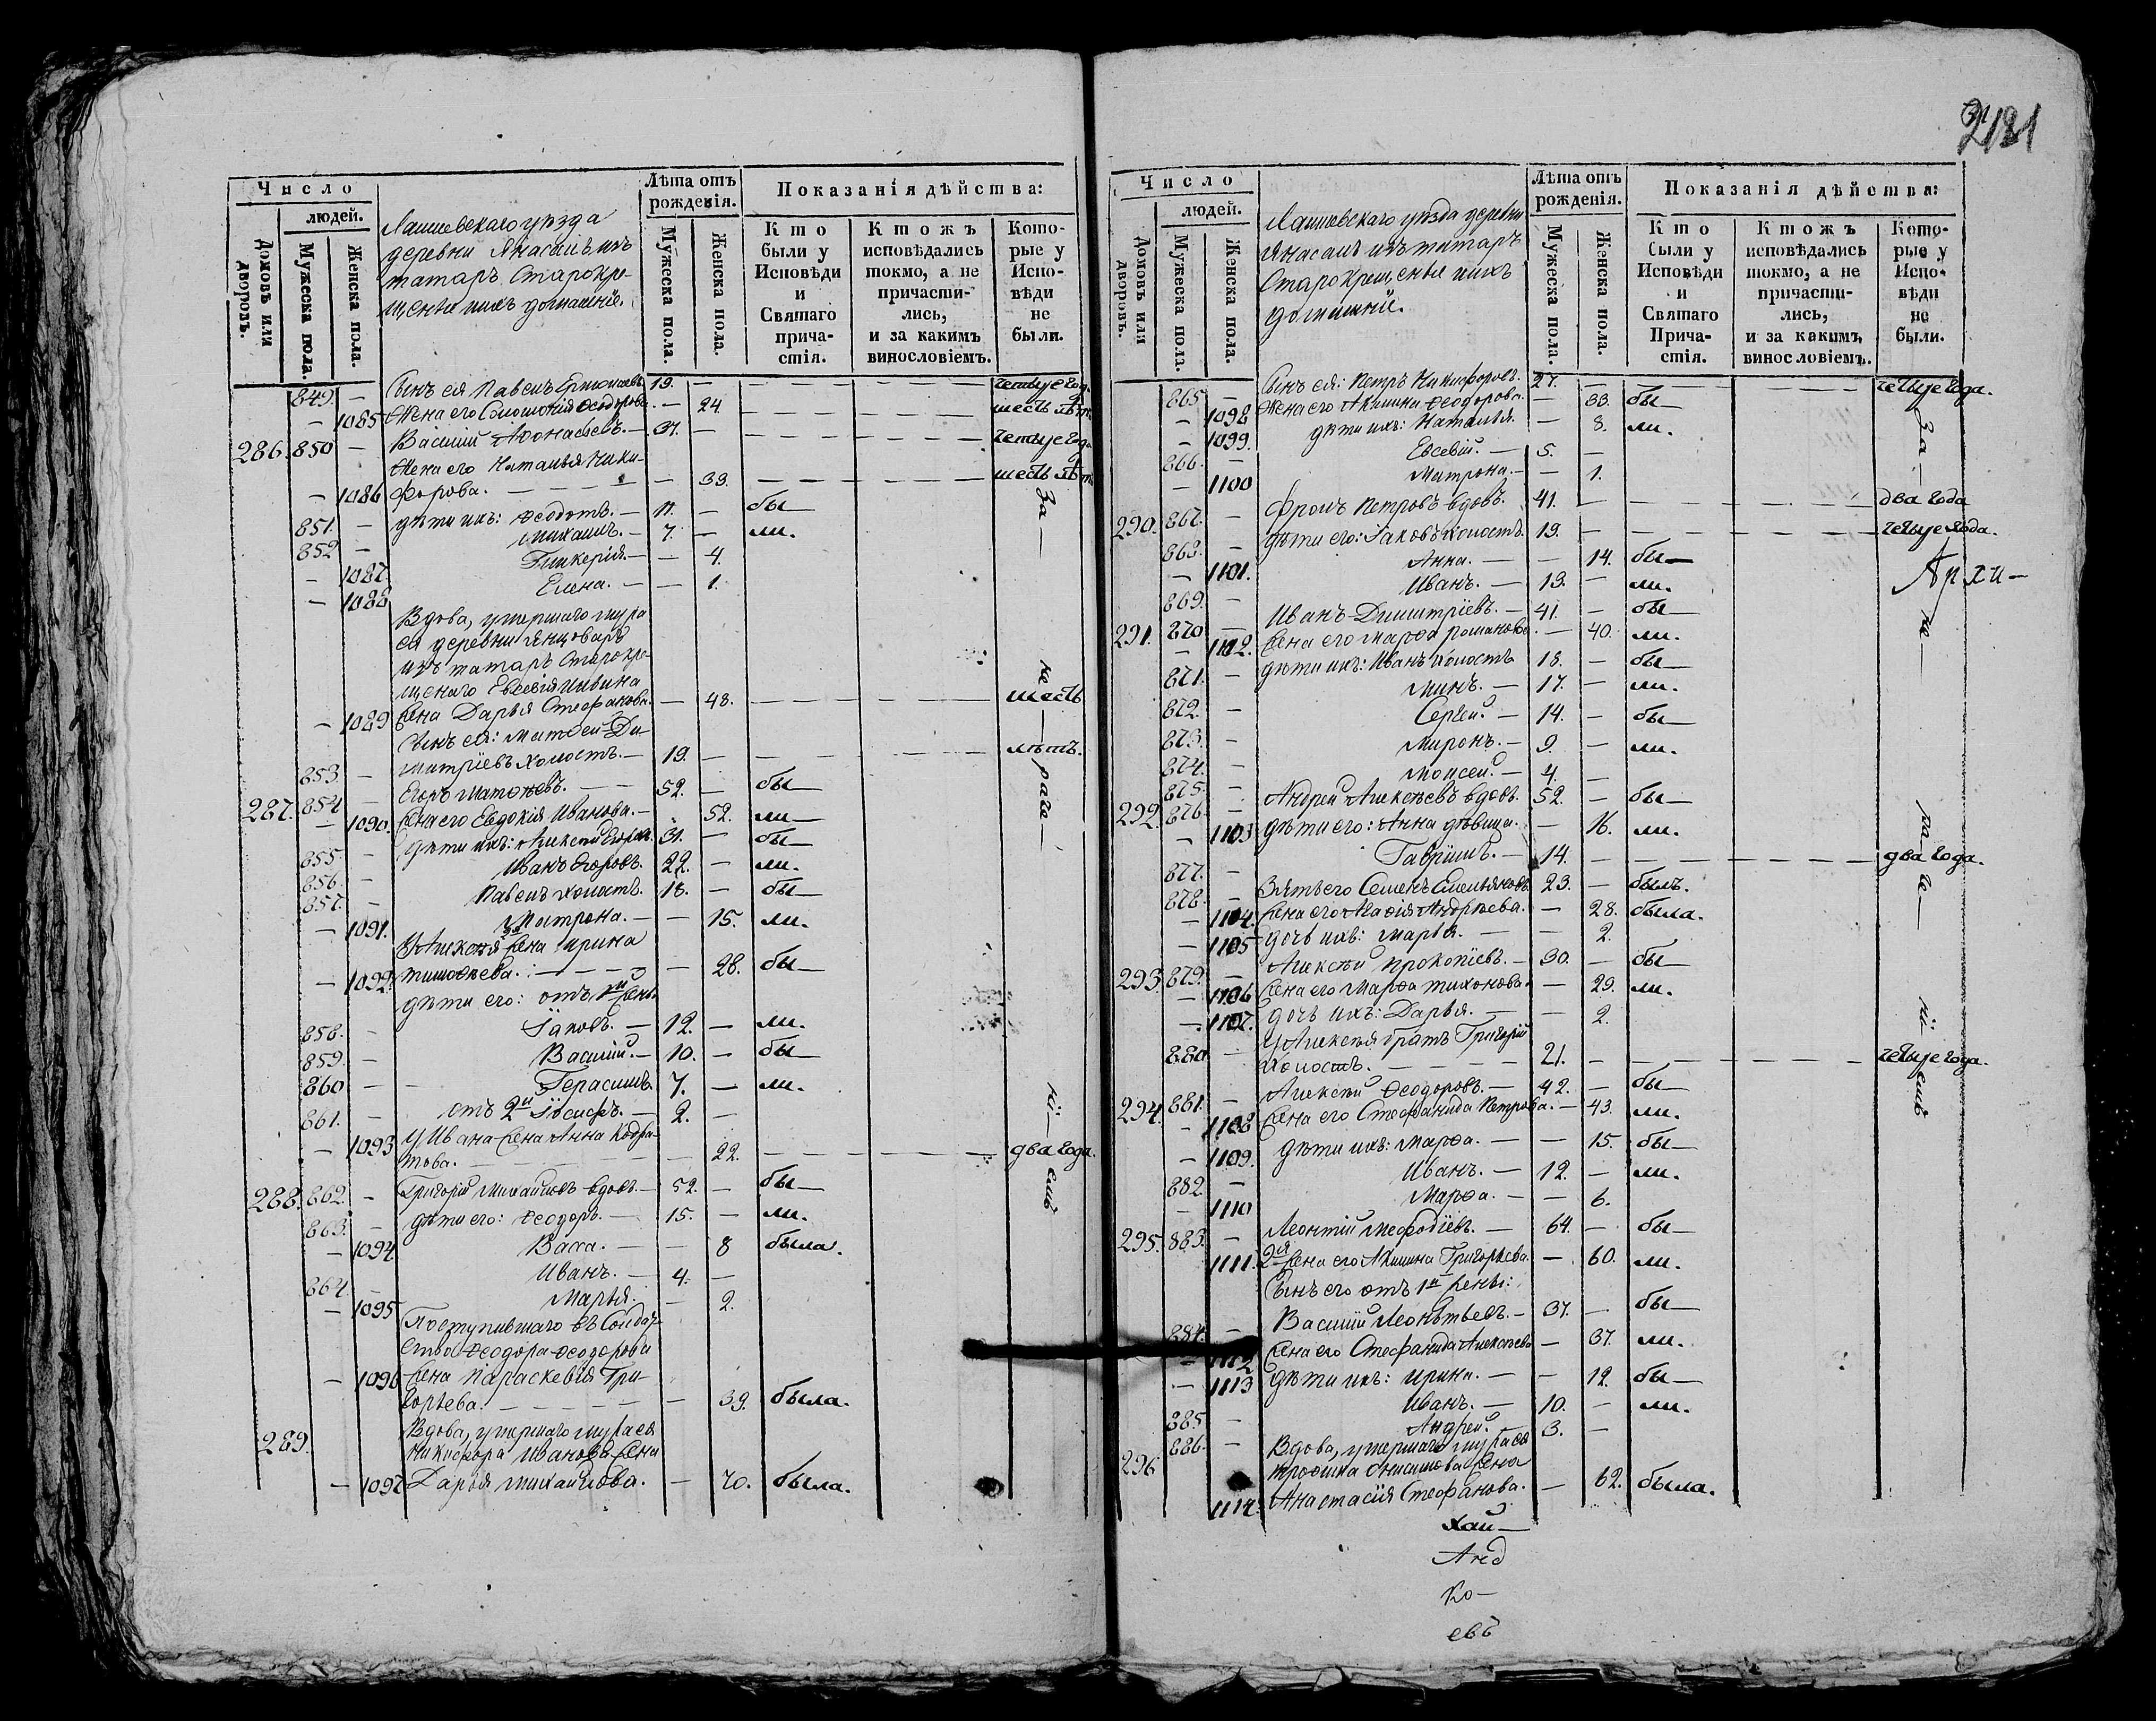 2131
Число
людей.
Домовъ или дворовъ.
Мужеска пола.
Женска пола.
Лаишевскаго уѣзда
деревни Янасалъ изъ
татаръ Старокре-
щеныхъ домашнїе.
Лѣта отъ рожденія.
Мужеска пола.
Женска пола.
Показанія дѣйства:
Кто были у Исповѣди и Святаго причастія.
Ктожъ исповѣдались токмо, а не причастились, и за какимъ винословіемъ.
Которые у Исповѣди не были.
849. — Сынъ ея Павелъ 19. — — — четыре года
— 1085 Жена его Ѳеодорова — 24 — — шесть лѣтъ
286. 850 — Василий Афонасьевъ. — 37. — — — четыре года
Жена его Наталья Ники-
— 1086 форова. — — 33. — — шесть лѣтъ
851. — дѣти ихъ: Ѳеодотъ. — 11. — бы—
852 — Михаилъ. — 7. — ли.
— 1087 Гликерія. — — 4.
— 1088 Елена. — — 1.
Вдова, умершаго мужа
ея деревни Янцоваръ
изъ татаръ Старокре-
щенаго Евсевія
— 1089 жена Дарья Стефанова. — 48. — — шесть
Сынъ ея: Матвей Ди-
853 — митріевъ холостъ. — 19. — — — лѣтъ.
287. 854 — Егоръ Матвѣевъ. — 52. — бы—
— 1090. Жена его Евдокія Иванова. — 52. ли—
855. — дѣти ихъ: Алексѣй Егоровъ. 31. — бы—
856. — Иванъ Егоровъ. 22. — ли.
857. — Павелъ холостъ. 18. — бы—
— 1091. Матрона. — — 15. ли.
У Алексѣя жена Ирина
— 1092. Тимоѳеева. — — 28. бы—
дѣти его: отъ 1й жены
858. — Іаковъ. — 12. — ли.
859. — Василій. — 10. — бы—
860 — — Герасимъ. 7. — ли.
861. — отъ 2й Іосифъ. — 2. —
— 1093 У Ивана жена Анна Кодра-
това. — — 22. — — два года.
288. 862. — Григорій Михайловъ вдовъ. — 52. — бы—
863. — дѣти его: Ѳеодоръ. — 15. — ли.
— 1094 Васса. — — 8 была.
864. — Иванъ. — 4. —
— 1095 Марья. — 2.
Поступившаго въ Солдат-
ство Ѳеодора Ѳеодорова
— 1096 жена Параскевія Гри-
горьева. — — 39. была.
289. Вдова, умершаго мужа ея
Никифора Иванова жена
— 1097 Дарья Михайлова. — 70. была.
За — не — раче — нї — емъ
Число
людей.
Домовъ или дворовъ.
Мужеска пола.
Женска пола.
Лаишевскаго уѣзда деревни
Янасалъ изъ татаръ
Старокрещеныхъ
домашнїе.
Лѣта отъ рожденія.
Мужеска пола.
Женска пола.
Показанія дѣйства:
Кто были у Исповѣди и Святаго Причастія.
Ктожъ исповѣдались токмо, а не причастились, и за какимъ винословіемъ.
Которые у Исповѣди не были.
865 — Сынъ ея: Петръ Никифоровъ. 27. — четыре года.
— 1098 Жена его Акилина Ѳеодорова. — 33. бы—
— 1099. дѣти ихъ: Наталья. — 8. ли.
866. — Евсевій. — 5. —
— 1100 Матрона. — — 1.
290. 867. — Фролъ Петровъ вдовъ. 41. — — два года
868. — дѣти его: Іаковъ холостъ. 19. — — четыре года.
— 1101. Анна. — — 14. бы—
869. — Иванъ. — 13. — ли.
291. 870 — Иванъ Димитріевъ. — 41. — бы—
— 1102. Жена его Марѳа Романова. — 40. ли.
871. — дѣти ихъ: Иванъ холостъ 18. — бы—
872. — Минъ. — 17. — ли.
873. — Сергей. — 14. — бы—
874. — Миронъ. — 9. — ли.
875. — Моисей. — 4. —
292. 876. — Андрей Алексѣевъ вдовъ. 52. — бы—
— 1103 дѣти его: Анна дѣвица. — 16. ли.
877. — Гаврїилъ. — 14. — — два года.
878. — Зять его Семенъ Емельяновъ 23. — былъ.
— 1104. жена его Агаѳія Андреева. — 28. была.
— 1105 дочь ихъ: Марья. — — 2.
293. 879. — Алексѣй Прокопіевъ. — 30. — бы—
— 1106 жена его Марѳа Тихонова. — 29. ли.
— 1107. дочь ихъ: Дарья. — — 2.
880. — У Алексѣя братъ Григорій
холостъ. — — 21. — — четыре года.
294. 881. — Алексѣй Ѳеодоровъ. — 42. — бы—
— 1108 жена его Стефанида Петрова. — 43. ли.
— 1109. дѣти ихъ: Марѳа. — — 15. бы—
882. — Иванъ. — 12. — ли.
— 1110 Марѳа. — — 6.
295. 883. — Леонтій Меѳодіевъ. — 64. — бы—
1111. 2я жена его Акилина Григорьева. — 60. ли.
Сынъ его отъ 1й жены:
884. — Василій Леонтьевъ. — 37. — бы—
— 1112 жена его Стефанида Алексѣева — 37. ли.
— 1113 дѣти ихъ: Ирина. — — 12. бы—
885. — Иванъ. — 10. — ли.
886. — Андрей. — 3. —
296 Вдова, умершаго мужа ея
Трофима Онисимова жена
1114. Анастасія Стефанова. — 62. была.
За — не — ра — че — нї — емъ
Архи—
хай—
Анд
ко—
евъ